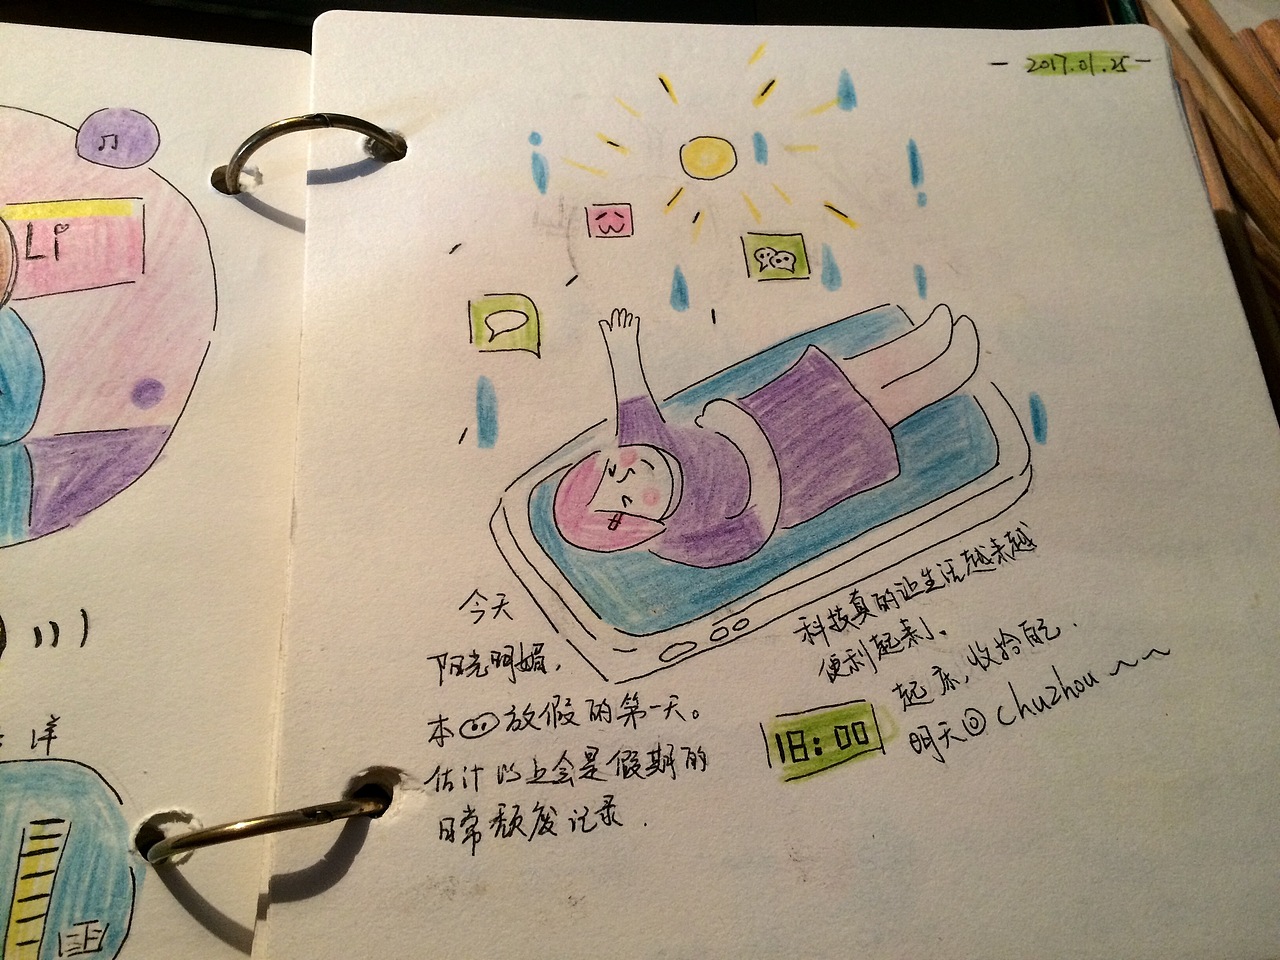 2017.01.25
Li
今天
阳光明媚,
本放假的第一天。
估计以上会是假期的
日常颓废记录.
科技真的让生活越来越
便利起来、
起床,收拾自己.
明天回 chuzhou ~~
18:00
洋